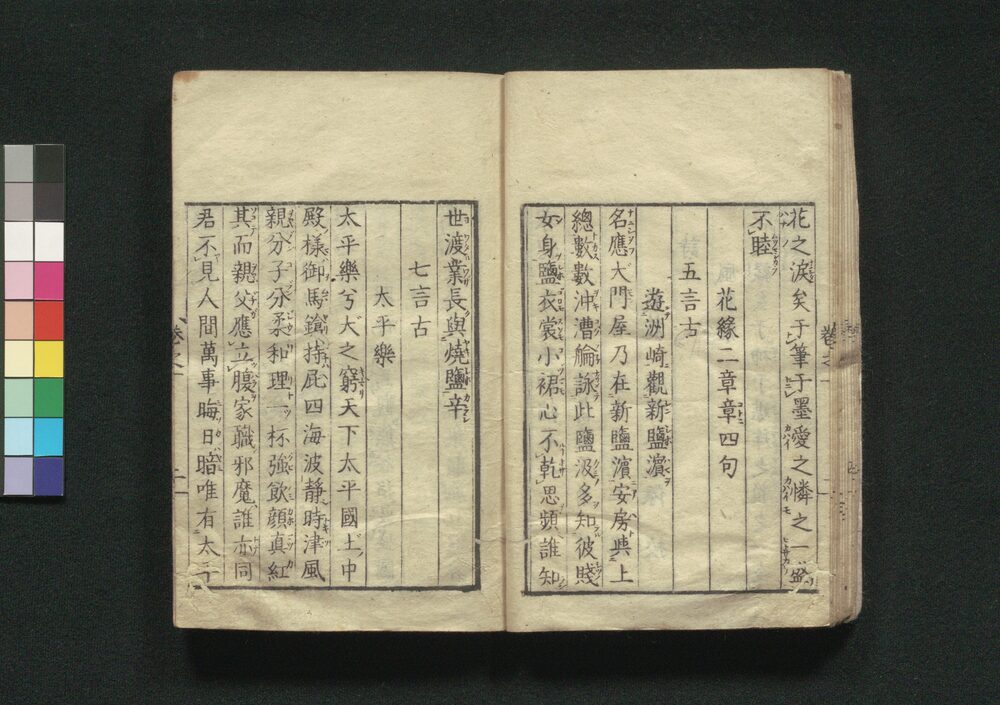 花之涙矣于筆于墨愛之憐之一盛
不睦
花緣二章章四句
五言古
遊洲崎觀新鹽濵
名應大門屋乃在新鹽濵安房與上
總數數沖漕艫詠此鹽汲多知彼賤
女身鹽衣裳小裙心不乾思頻誰知
世渡業長與燒鹽辛
七言古
太平樂
太平樂兮大之窮天下太平國土中
殿樣御馬鎗持屁四海波靜時津風
親分子分柔和理一杯強飲顔真紅
其而親父應立腹家職邪魔誰亦同
君不見人間萬事晦日暗唯有太平